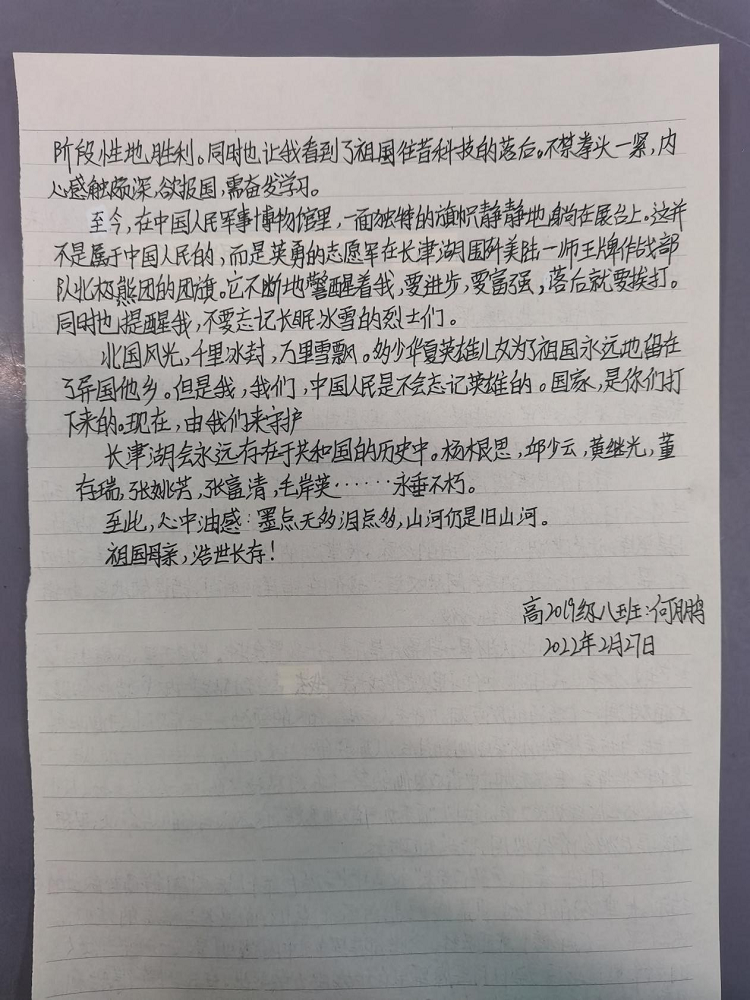 阶段性地胜利。同时也让我看到了祖国住昔科技的落后。不禁拳头一紧，内
心感触颇深，欲报国，需奋发学习。
至今，在中国人民军事博物馆里，一面独特的旗帜静静地躺在展台上。这并
不是属于中国人民的，而是英勇的志愿军在长津湖围歼美陆一师王牌作战部
队北极熊团的团旗。它不断地警醒着我，要进步，要富强，落后就要挨打。
同时也提醒我，不要忘记长眠冰雪的烈士们。
北国风光，千里冰封，万里雪飘。多少华夏英雄儿女为了祖国永远地留在
了异国他乡。但是我，我们，中国人民是不会忘记英雄的。国家，是你们打
下来的。现在，由我们来守护
长津湖会永远存在于共和国的历史中。杨根思，邱少云，黄继光，董
存瑞，张桃芳，张富清，毛岸英······永垂不朽。
至此，心中油感：墨点无多泪点多，山河仍是旧山河。
祖国母亲，浩世长存！
高2019级八班：何鹏
2022年2月27日